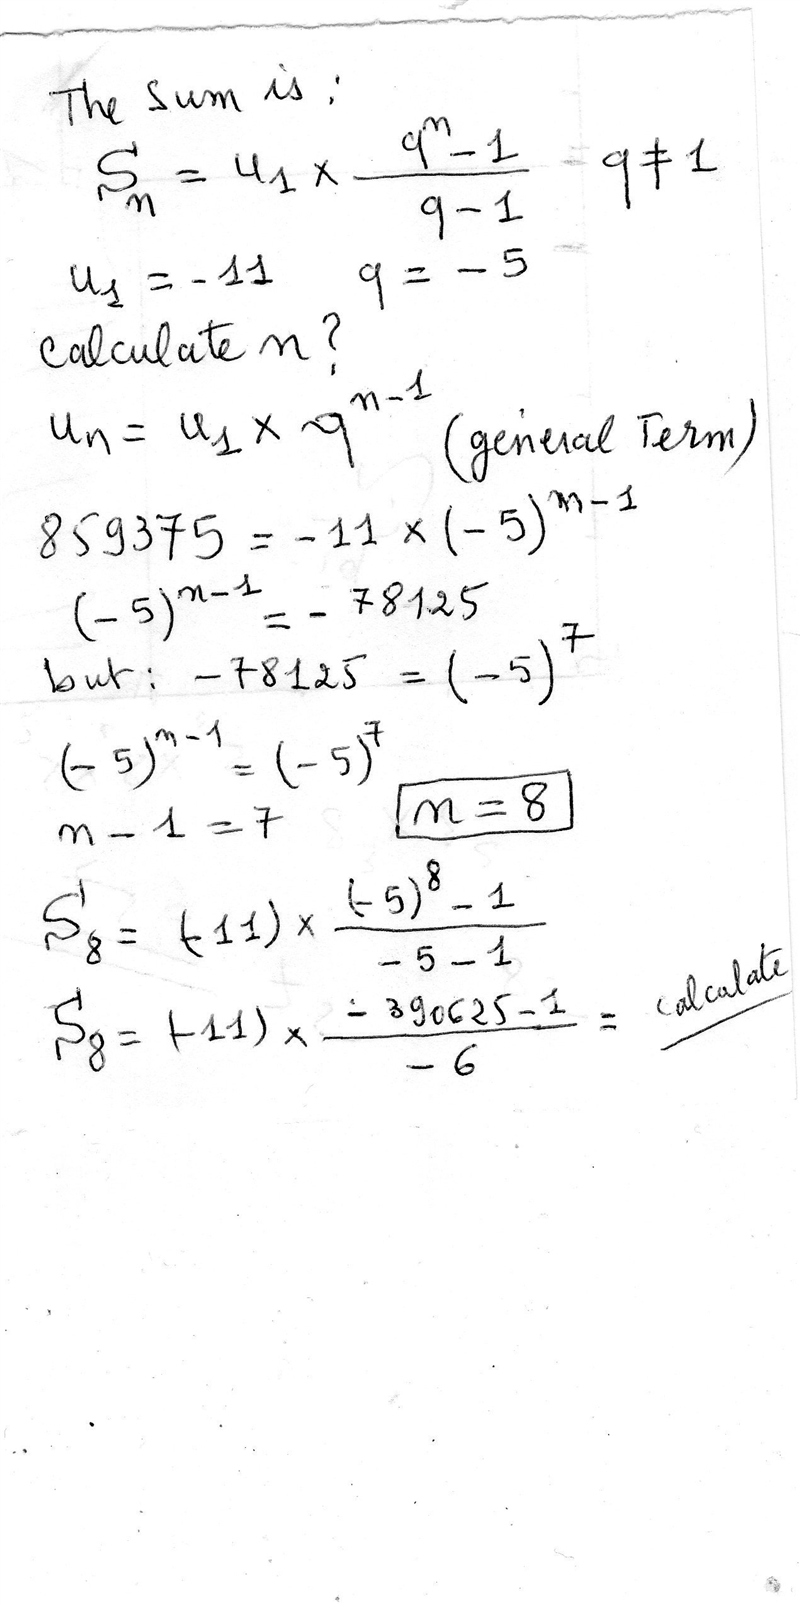 The sum is:
Sn = u1 × (q^n - 1)/(q - 1) q ≠ 1
u1 = - 11 q = - 5
calculate n?
un = u1 × q^(n-1) (general Term)
859375 = - 11 × (- 5)^(n-1)
(- 5)^(n-1) = - 78125
but: - 78125 = (- 5)^7
(- 5)^(n-1) = (- 5)^7
n - 1 = 7 n = 8
S8 = (-11) × ((-5)^8 - 1)/(- 5 - 1)
S8 = (-11) × (- 390625 - 1)/(- 6) = calculate